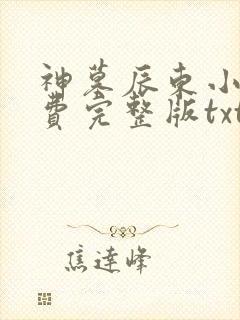 神墓辰东小
费完整版txt
焦达峰